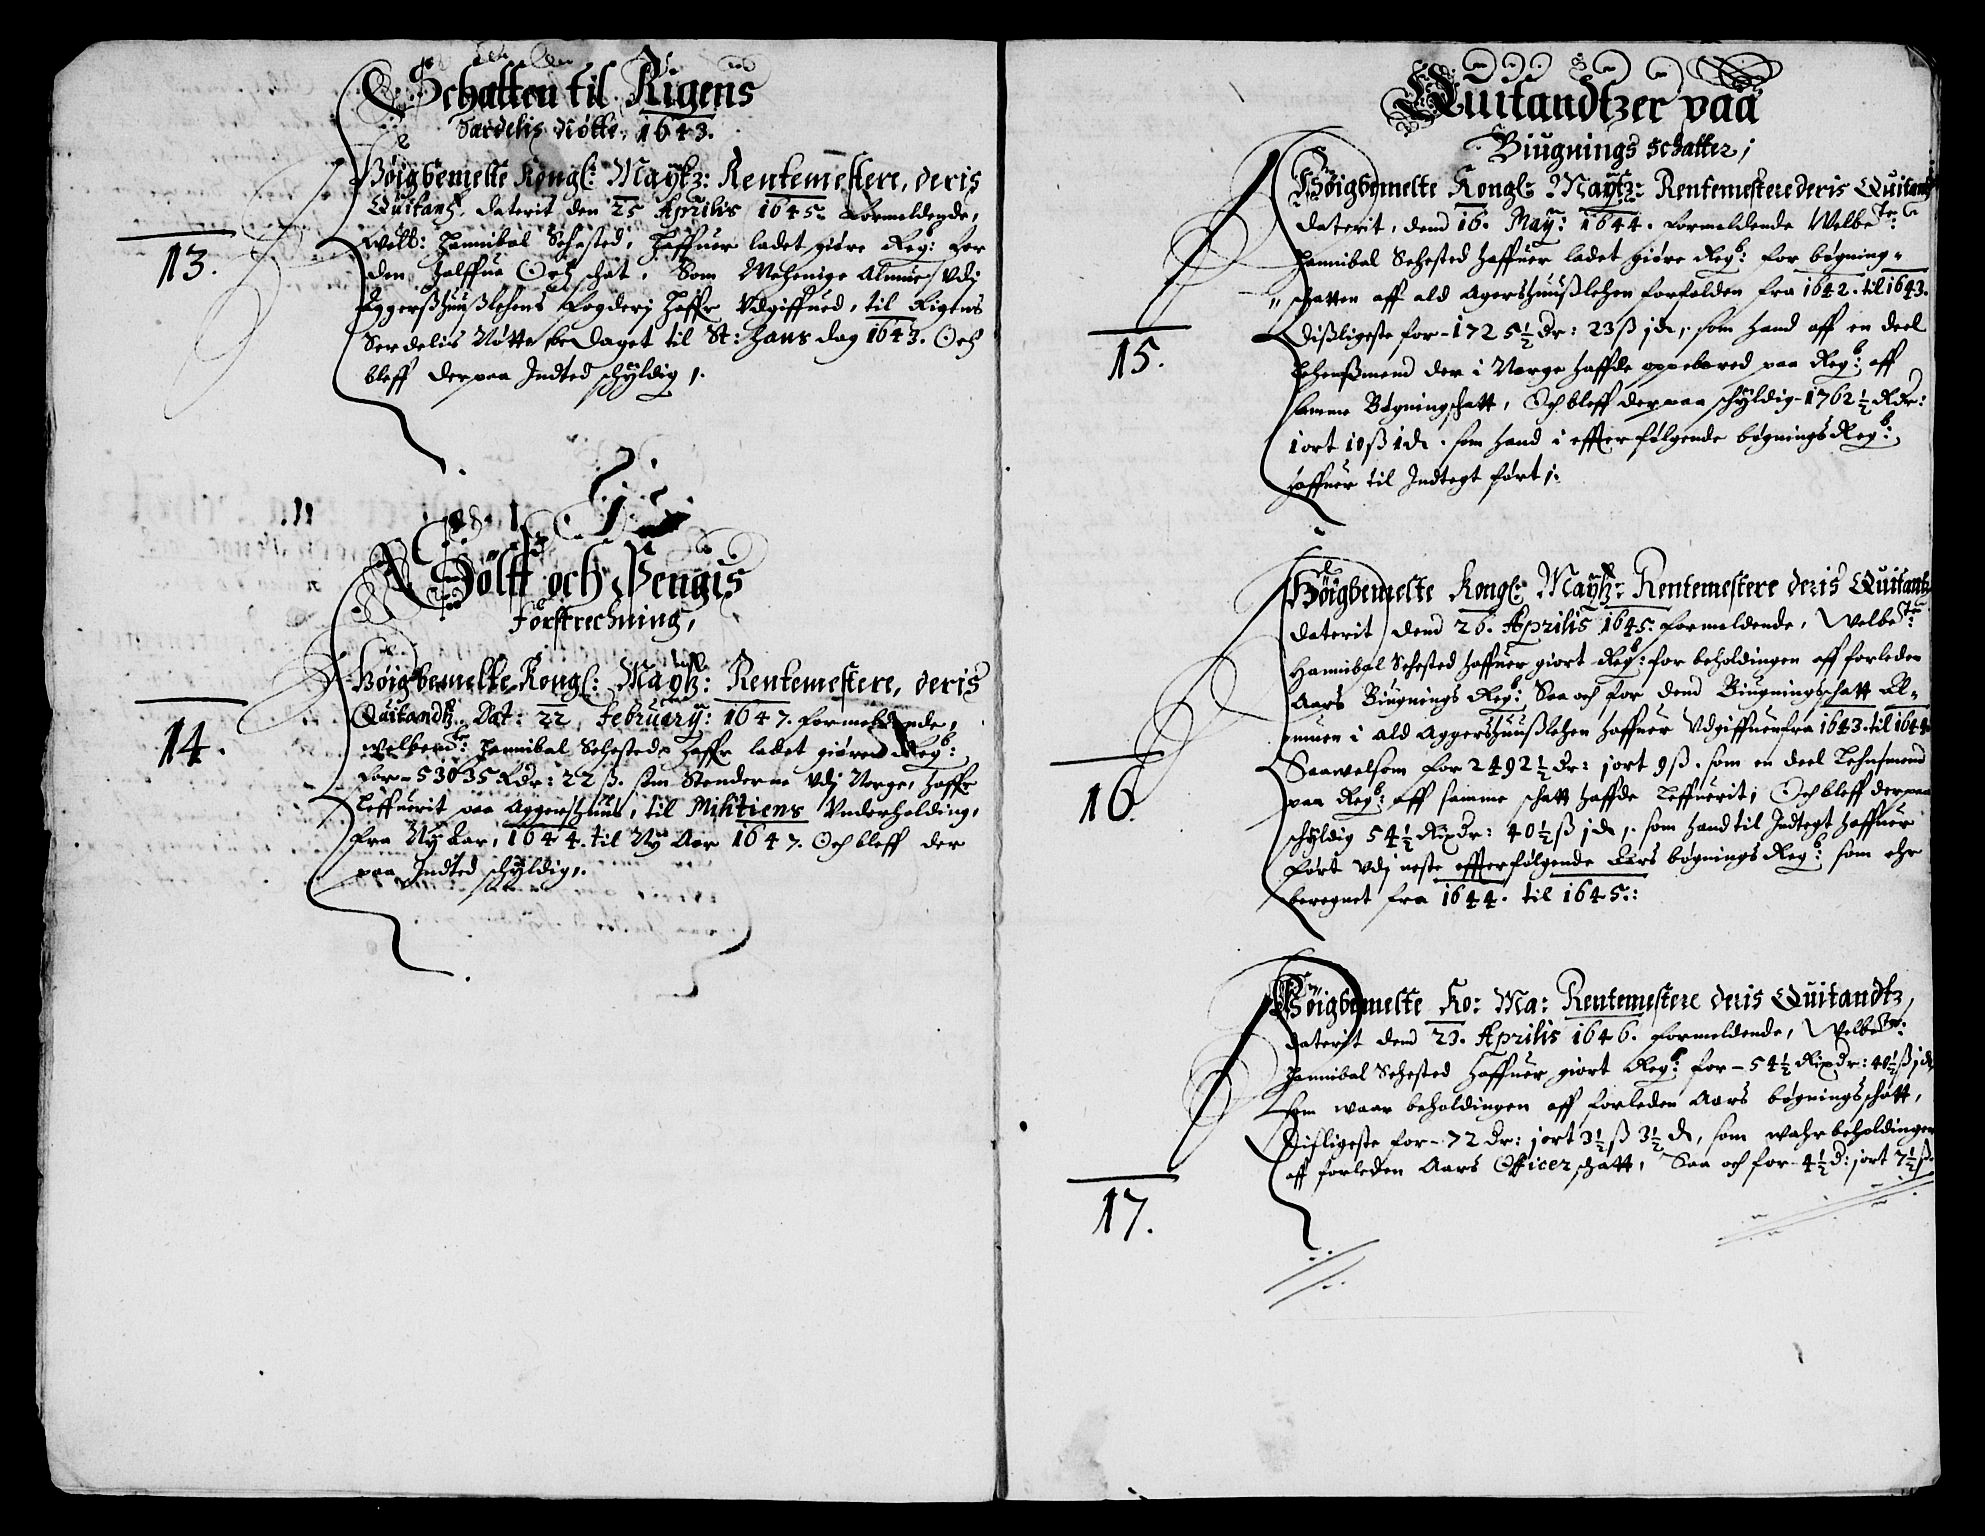 Schatten til Rigens
Særdelis Nötte, 1643.
Höigbemelte Kongl: Maÿtz: Rentemestere, deris
Quitantz, daterit den 25 Aprilis 1645. Formeldende,
Welb: Hannibal Sehested, Haffuer ladet giöre Regb: for
den halffue Och schat, Som Mehenige Almue vdj
Aggerßhuußlehens Fogderj Haffr Vdgiffued, til Rigens
Serdelis Nötte be Daget til St: Hans dag 1643. Och
bleff derpaa Indted schÿldig ,.
13.
Sölff och Pengis
Forstrechning,
Höigbemelte Kongl: Maÿtz: Rentemestere, deris
Quitandtz Dat: 22 Februarÿ: 1647. Formeldende,
welbemte: Hannibal Sehested, Haffr ladet giöre Regb:
For - 53035 Rdr: 22 ß. som Stenderne vdj Norge, Haffr
Leffuerit paa Aggershuus, til Militiens Vnderholding,
Fra Nÿ Aar, 1644. til Nÿ Aar 1647. Och bleff der
paa Indted schÿldig,.
14.
Quitandtzer paa
Biugnings schatter;
Höigbemelte Kongl: Maÿtz: Rentemestere deris Quitantz
daterit, dend 16. Maÿ: 1644. Formeldende Welbete:
Hannibal Sehested Haffuer ladet giöre Regb: for bögning-
schatten aff ald Agershuußlehen forfalden fra 1642. til 1643.
Dißligeste for - 1725½ Dr: 23 ß j d, som hand aff en deel
Lehenßmend der i Norge Haffde oppebared paa Regb: aff
samme Bögningschatt, Och bleff der paa schÿldig - 1762½ Rdr:
1 ort 10 ß 1 d. som hand i effterfölgende bögnings Regb:
Haffuer til Indtegt fört ;.
15.
Höigbemelte Kongl: Maÿtz: Rentemestere deris Quitantz
Daterit dend 26. Aprilis 1645. formeldende, Welbete:
Hannibal Sehested Haffuer giort Regb: for beholdingen aff forleden
Aars Biugnings Regb: Saa och for dend Biugningschatt Al-
muen i ald Aggershuußlehen Haffuer Vdgiffuen fra 1643. til 1644
Saawelsom for 2492½ Dr: j ort 9 ß. som en deel Lehnsmend
paa Regb: aff samme schatt Haffde Leffuerit; Och bleff der paa
schÿldig 54½ Rixdr: 40½ ß j d,. som hand til Indtegt Haffuer
Fört vdj neste effterfölgende Aars bögnings Regb: som ehr
beregnet fra 1644. til 1645.:
16.
Höigbemelte Ko: Ma: Rentemestere deris Quitandtz,
daterit dend 23. Aprilis 1646. Formeldende, Welbete:
Hannibal Sehested Haffuer giort Regb: for - 54½ Rixdr: 40½ ß j d,
som waar beholdingen aff forleden Aars bögningsschatt,
Disligeste for - 72 Dr: j ort 3½ ß 3½ d, som wahr beholdingen
aff forleden Aars Officer schatt, Saa och for 4½ d: j ort 7½ ß
17.